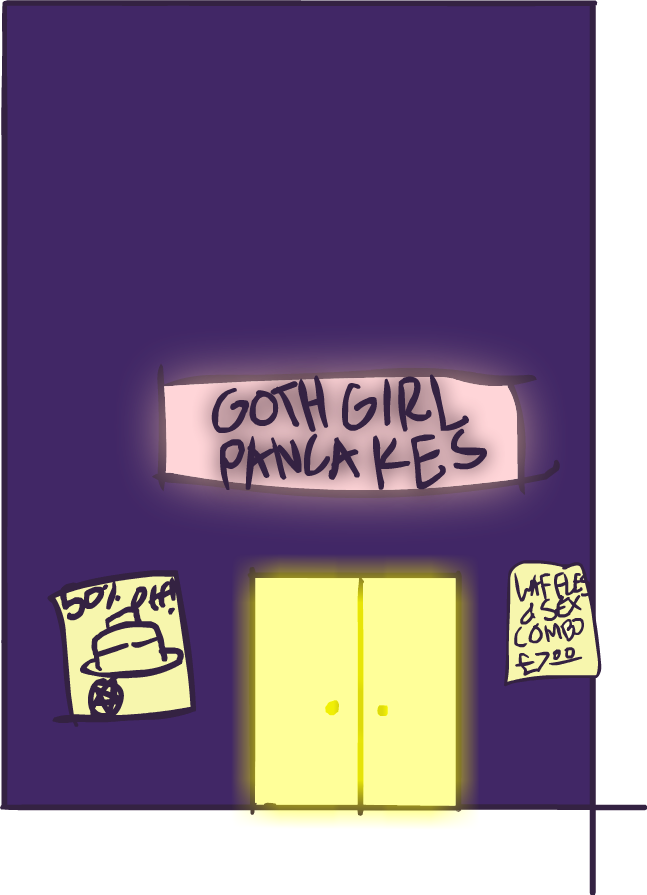 GOTH GIRL
PANCAKES
50% OFF!
WAFFLES
& SEX
COMBO
£7.00